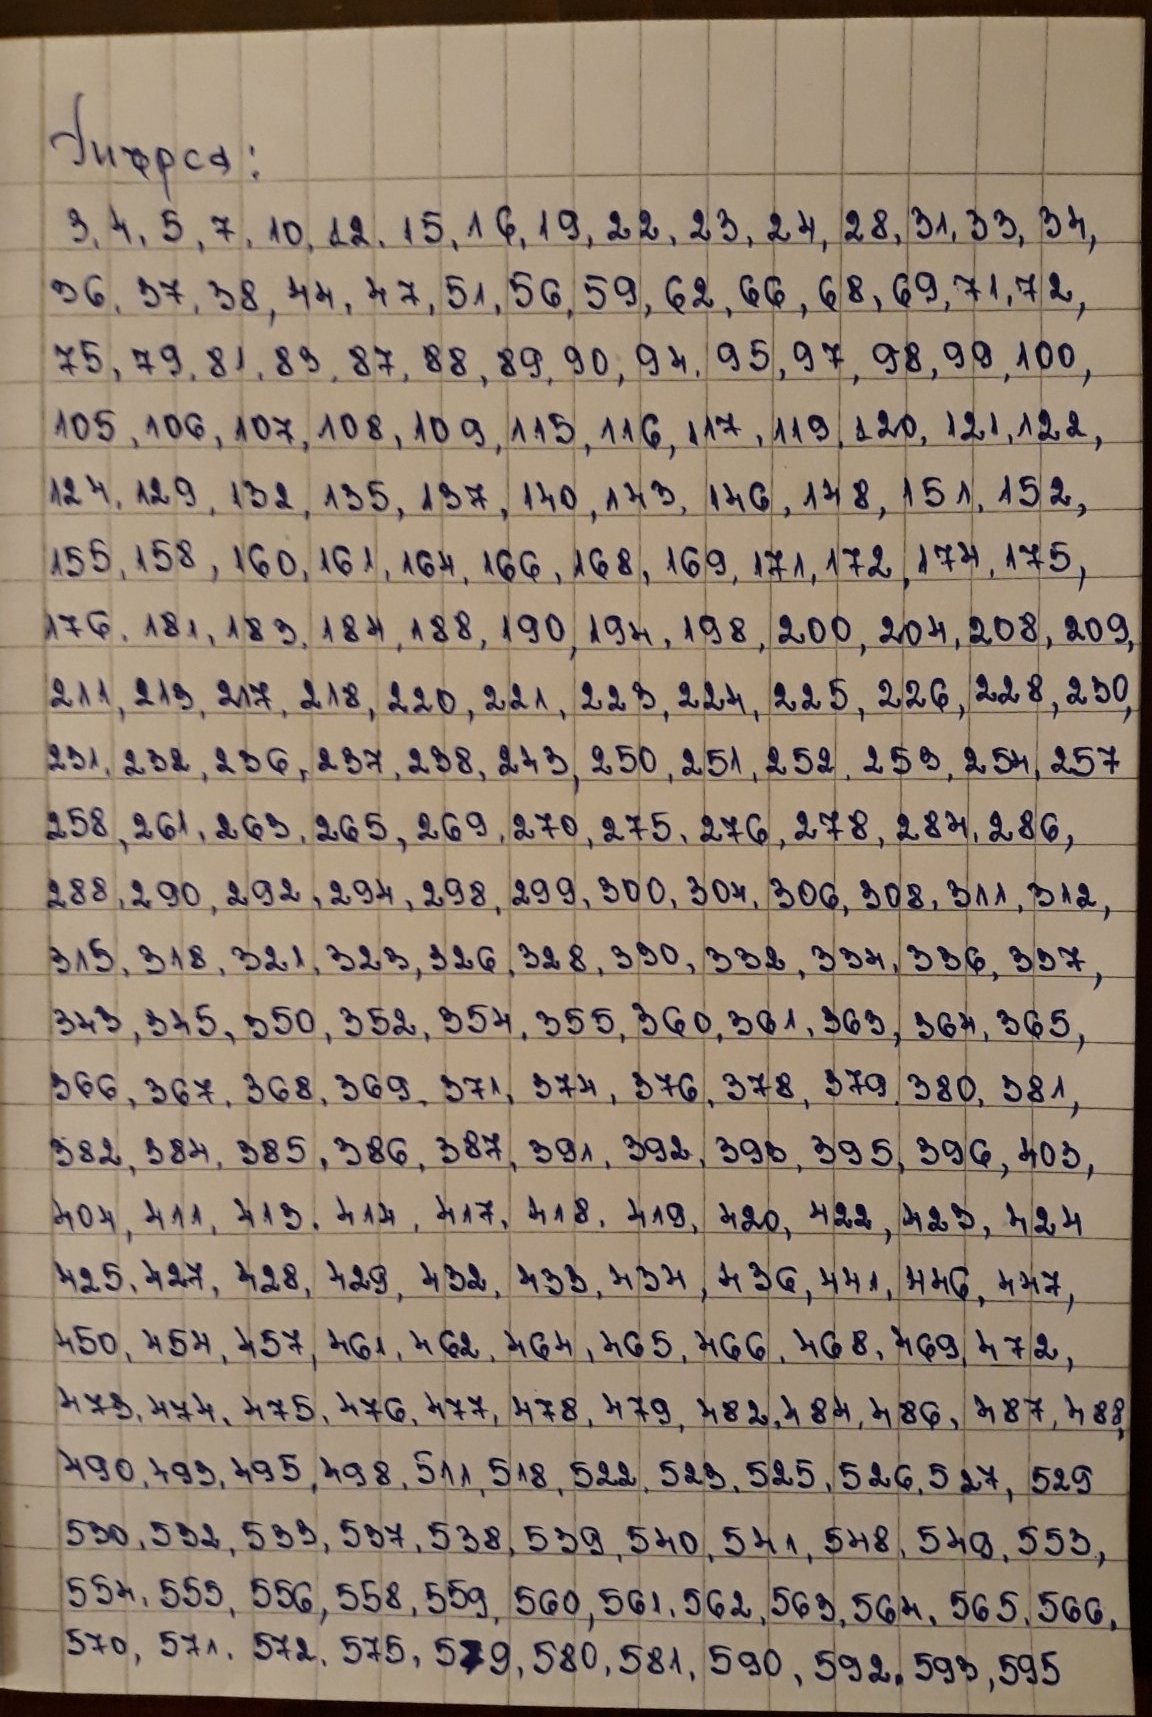 3, 4, 5, 7, 10, 12, 15, 16, 19, 22, 23, 24, 28, 31, 33, 34,
36, 37, 38, 44, 47, 51, 56, 59, 62, 66, 68, 69, 71, 72,
75, 79, 81, 83, 87, 88, 89, 90, 94, 95, 97, 98, 99, 100,
105, 106, 107, 108, 109, 115, 116, 117, 119, 120, 121, 122,
124, 129, 132, 135, 137, 140, 143, 146, 148, 151, 152,
155, 158, 160, 161, 164, 166, 168, 169, 171, 172, 174, 175,
176, 181, 183, 184, 188, 190, 194, 198, 200, 204, 208, 209,
211, 213, 217, 218, 220, 221, 223, 224, 225, 226, 228, 230,
231, 232, 236, 237, 238, 243, 250, 251, 252, 253, 254, 257
258, 261, 263, 265, 269, 270, 275, 276, 278, 284, 286,
288, 290, 292, 294, 298, 299, 300, 304, 306, 308, 311, 312,
315, 318, 321, 323, 326, 328, 330, 332, 334, 336, 337,
343, 345, 350, 352, 354, 355, 360, 361, 363, 364, 365,
366, 367, 368, 369, 371, 374, 376, 378, 379, 380, 381,
382, 384, 385, 386, 387, 391, 392, 393, 395, 396, 403,
404, 411, 413, 414, 417, 418, 419, 420, 422, 423, 424
425, 427, 428, 429, 432, 433, 434, 436, 441, 446, 447,
450, 454, 457, 461, 462, 464, 465, 466, 468, 469, 472,
473, 474, 475, 476, 477, 478, 479, 482, 484, 486, 487, 488,
490, 493, 495, 498, 511, 518, 522, 523, 525, 526, 527, 529
530, 532, 533, 537, 538, 539, 540, 541, 548, 549, 553,
554, 555, 556, 558, 559, 560, 561, 562, 563, 564, 565, 566,
570, 571, 572, 575, 579, 580, 581, 590, 592, 593, 595